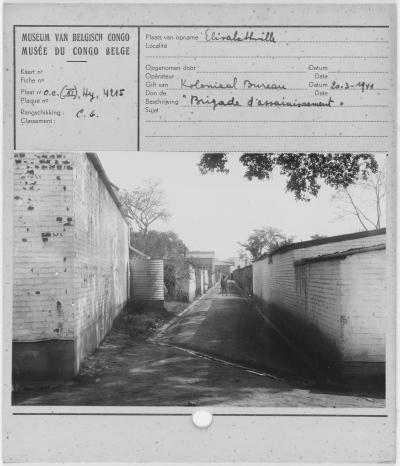 MUSEUM VAN BELGISCH CONGO
MUSÉE DU CONGO BELGE
Kaart nr
Fiche nº
Plaat nr O.C. (XI), Hy, 4215
Plaque nº
Rangschikking : C. 6.
Classement :
Plaats van opname Elisabethville
Localité
Opgenomen door Datum
Opérateur Date
Gift van Koloniaal Bureau Datum 20-3-1941
Don de Date
Beschrijving "Brigade d'assainissement".
Sujet